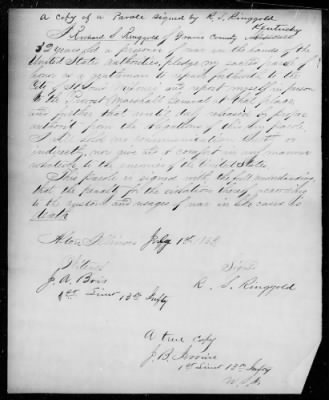 A copy of a Parole signed by R. S. Ringgold
Kentucky
I Richard S. Ringgold of Graves County Missouri
32 years old a prisoner of war in the hands of the
United State authorities, pledge my sacred parole of
honor as a gentleman to repair forthwith to the
City of St Louis Missouri and report myself in person
to the Provost Marshall General at that place
and further that until duly released or
from the obligations of this my parole
I shall hold no communication directly or
indirectly, nor give aid or comfort in any manner
whatever to the enemies of the United States.
This parole is signed with the full understanding
that the penalty for the violation thereof according
to the customs and usages of war in like cases is
Death
Alton Illinois July 1st 186
Witness Signed
J. A. R. S. Ringgold
1st Lieut 13th Infty
A true copy
J. B.
1st Lieut 13th Infty
U.S.A.